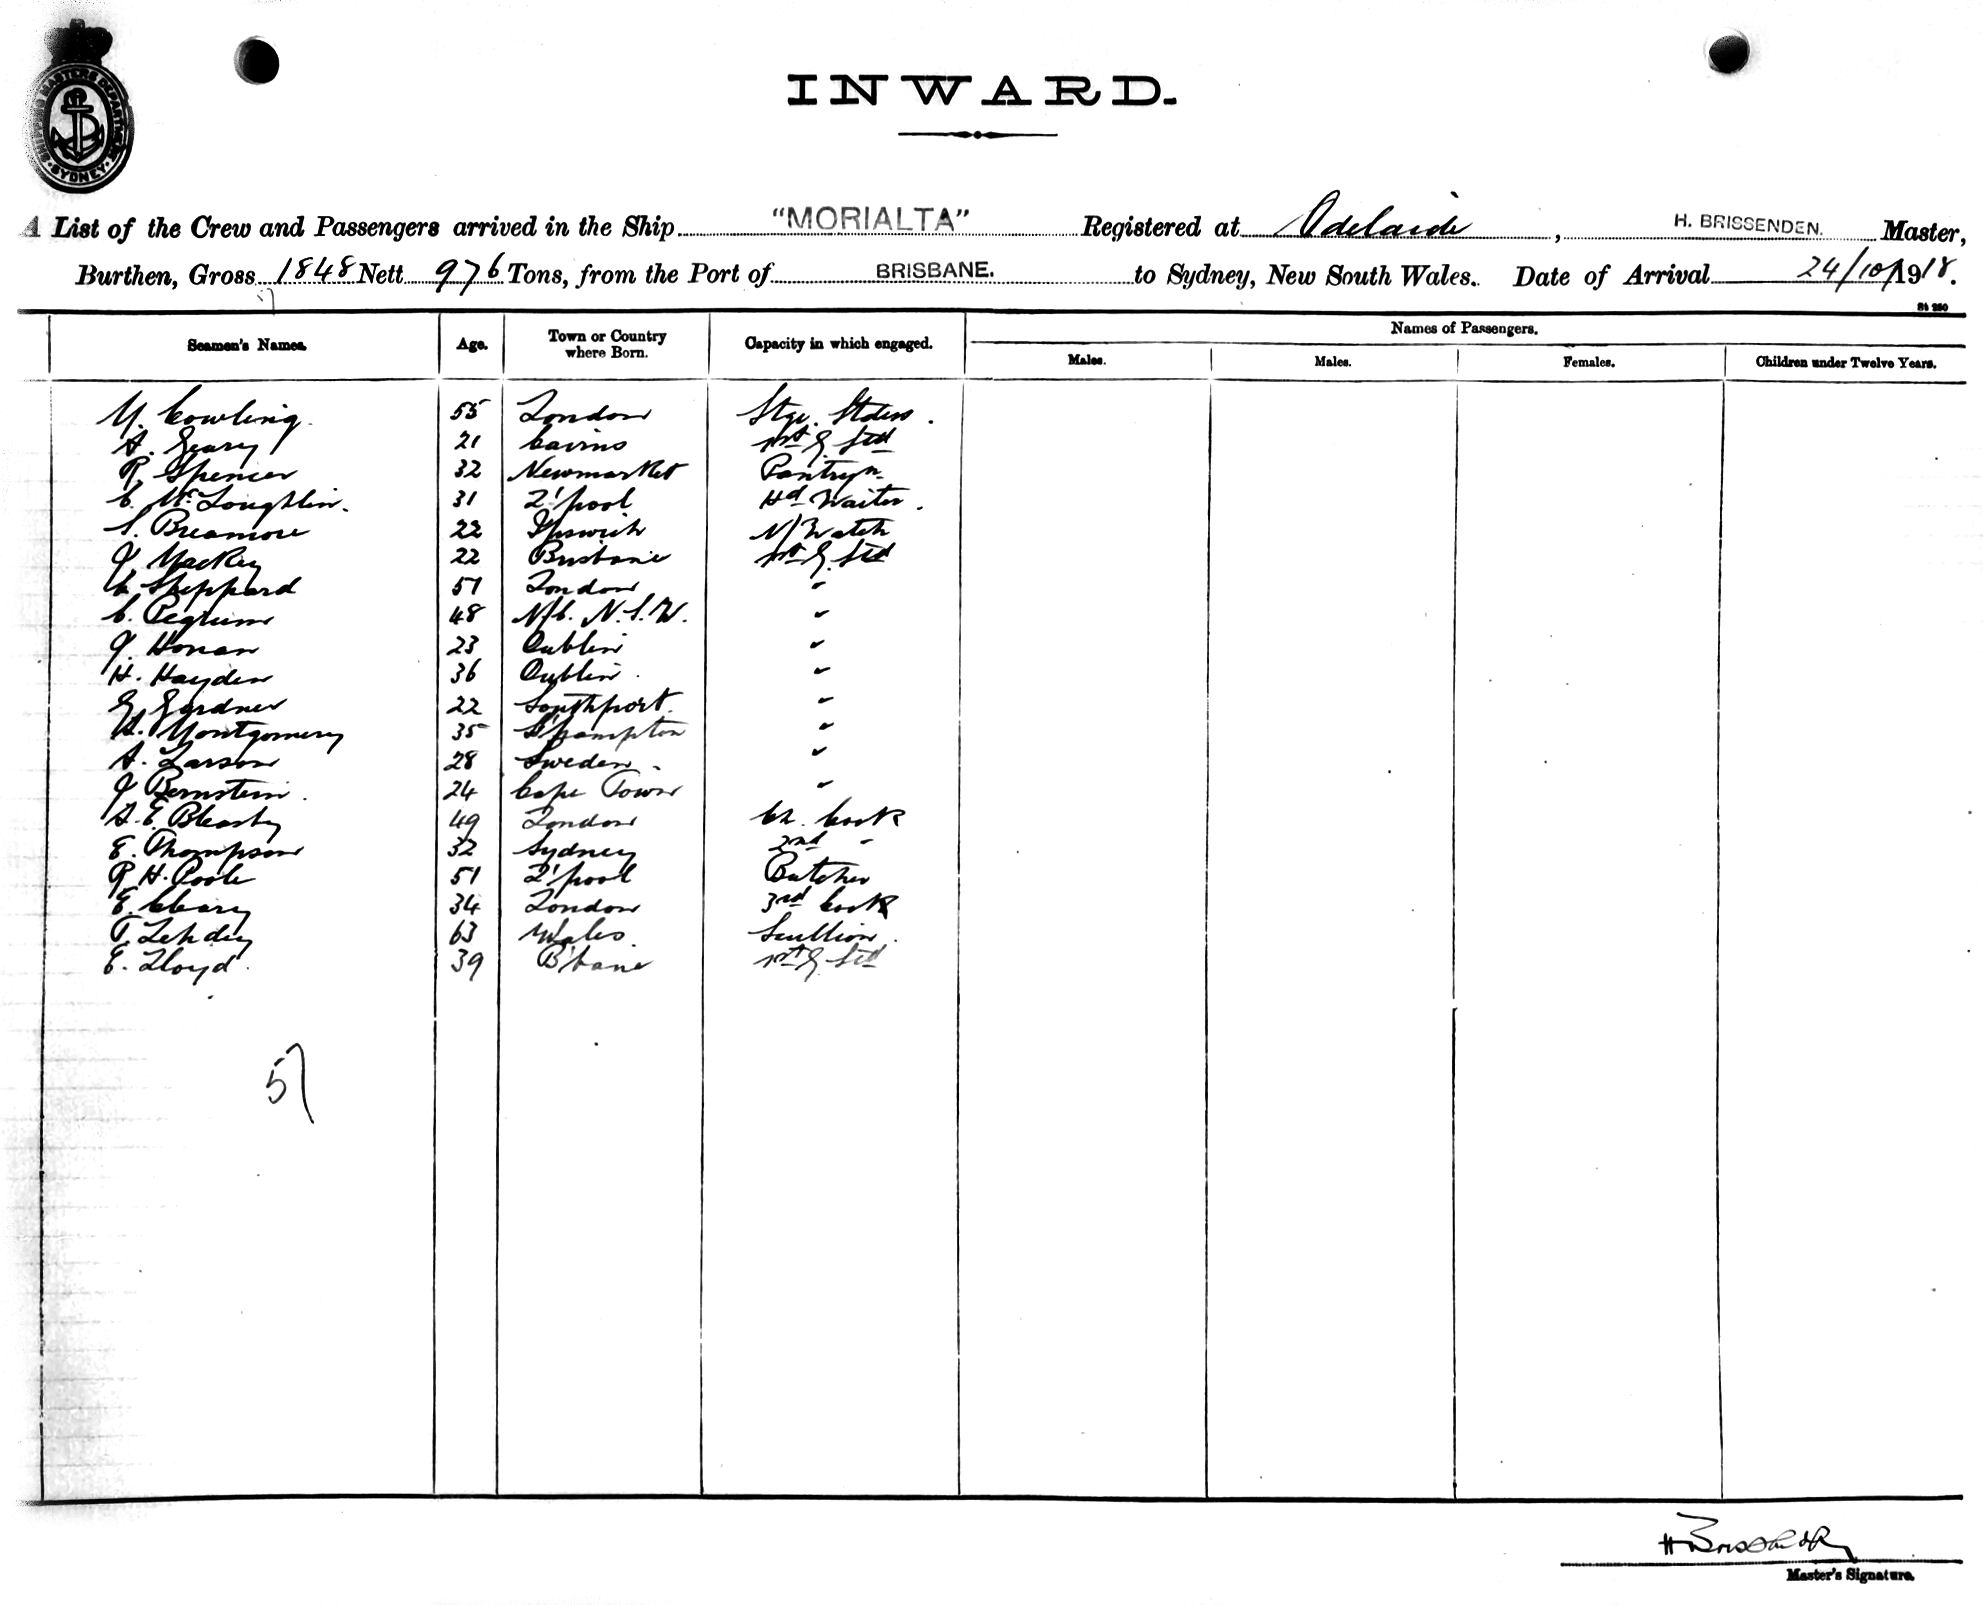 SHIPPING MASTERS DEPARTMENT SYDNEY
INWARD.
A List of the Crew and Passengers arrived in the Ship "MORIALTA" Registered at Adelaide, H. BRISSENDEN. Master,
Burthen, Gross 1848 Nett 976 Tons, from the Port of BRISBANE. to Sydney, New South Wales. Date of Arrival 24/10/1918.
57
St 280
Seamen's Names. Age. Town or Country where Born. Capacity in which engaged. Names of Passengers.
Males. Males. Females. Children under Twelve Years.
M. Cowling. 55 London Stge. Stdess.
A. Geary 21 Cairns 1st G. Std
R Spencer 32 Newmarket Pantryn
C. McLoughlin. 31 L'pool Hd Waiter.
S. Breamore 22 Ipswich N/Watch
J. Mackey 22 Brisbane 1st G. Std
C. Sheppard 51 London "
C. Pegrum 48 N/C. N.S.W. "
J. Honan 23 Dublin "
H. Hayden 36 Dublin. "
G Gardner 22 Southport. "
A. Montgomery 35 S'hampton "
A. Larson 28 Sweden. "
J Bernstein. 24 Cape Town "
A. E. Bleasby 49 London Ch. Cook
E. Thompson 32 Sydney 2nd "
R H. Poole 51 L'pool Butcher
E. Cleary 34 London 3rd Cook
T. 63 Wales. Scullion.
E. Lloyd. 39 B'bane 1st G. Std
57
H Brissenden
Master's Signature.